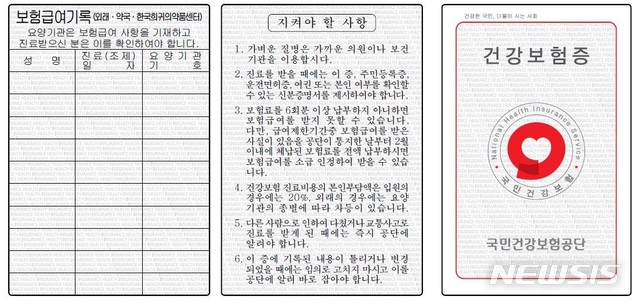 보험급여기록(외래·약국·한국희귀의약품센터)
요양기관은 보험급여 사항을 기재하고
진료받으신 분은 이를 확인하여야 합니다.
성 명
진료(조제)
일 자
요 양 기 관
기 호
지켜야 할 사항
1. 가벼운 질병은 가까운 의원이나 보건
기관을 이용합시다.
2. 진료를 받을 때에는 이 증, 주민등록증,
운전면허증, 여권 또는 본인 여부를 확인할
수 있는 신분증명서를 제시하여야 합니다.
3. 보험료를 6회분 이상 납부하지 아니하면
보험급여를 받지 못할 수 있습니다.
다만, 급여제한기간중 보험급여를 받은
사실이 있음을 공단이 통지한 날부터 2월
이내에 체납된 보험료를 전액 납부하시면
보험급여를 소급 인정하여 받을 수 있습
니다.
4. 건강보험 진료비용의 본인부담액은 입원의
경우에는 20%, 외래의 경우에는 요양
기관의 종별에 따라 차등이 있습니다.
5. 다른 사람으로 인하여 다쳤거나 교통사고로
진료를 받게 된 때에는 즉시 공단에
알려야 합니다.
6. 이 증에 기록된 내용이 틀리거나 변경
되었을 때에는 임의로 고치지 마시고 이를
공단에 알려 바로 잡아야 합니다.
건강한 국민, 더불어 사는 사회
건강보험증
National Health Insurance Service
국민건강보험
국민건강보험공단
NEWSIS